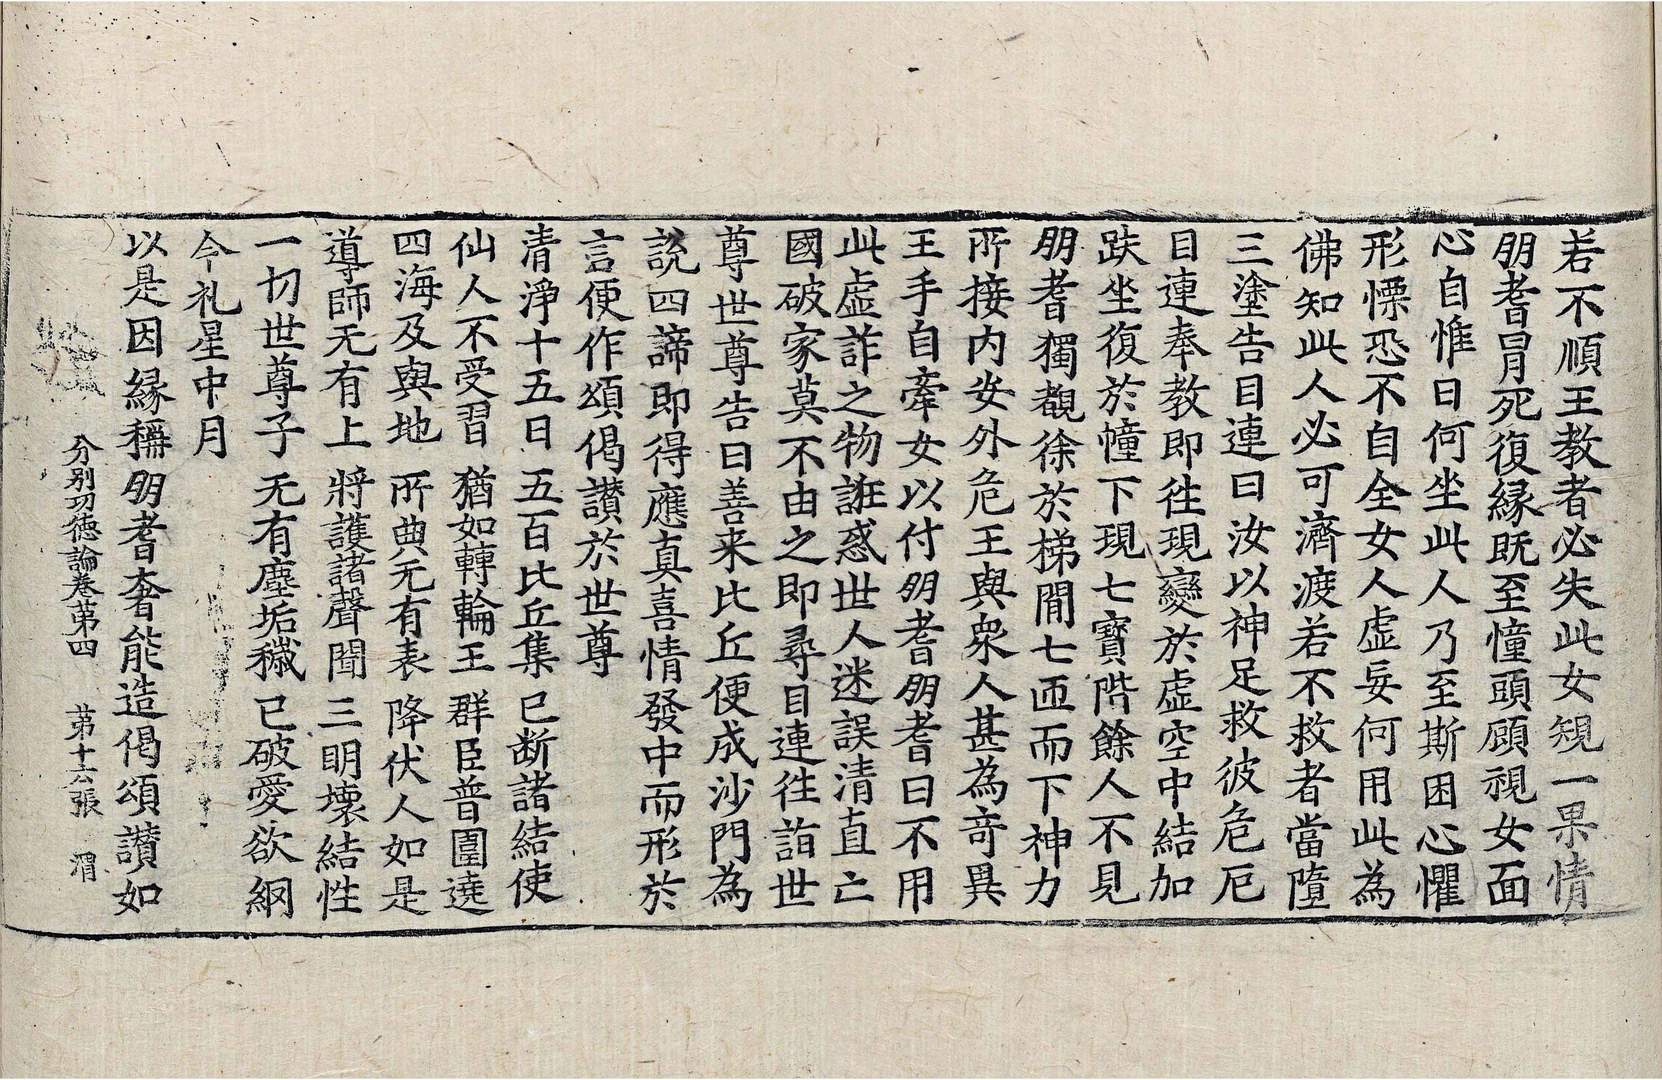 若不順王教者必失此女䂓一果情
朋耆冒死復緣既至憧頭顧視女面
心自惟曰何坐此人乃至斯困心懼
形慄恐不自全女人虛妄何用此為
佛知此人必可濟渡若不救者當墮
三塗告目連曰汝以神足救彼危厄
目連奉教即徃現變於虛空中結加
趺坐復於幢下現七寶階餘人不見
朋耆獨覩徐於梯閒七帀而下神力
所接内安外危王與衆人甚為竒異
王手自牽女以付朋耆朋耆曰不用
此虛詐之物誑惑世人迷誤清直亡
國破家莫不由之即尋目連徃詣世
尊世尊告曰善来比丘便成沙門為
說四諦即得應真喜情發中而形於
言便作頌偈讃於世尊
清淨十五日 五百比丘集 已断諸結使
仙人不受習 猶如轉輪王 群臣普圍遶
四海及與地 所典无有表 降伏人如是
導師无有上 將護諸聲聞 三明壞結性
一切世尊子 无有塵垢穢 已破愛欲網
今礼星中月
以是因緣稱朋耆奢能造偈頌讃如
分別功德論卷苐四 苐十六張 渭